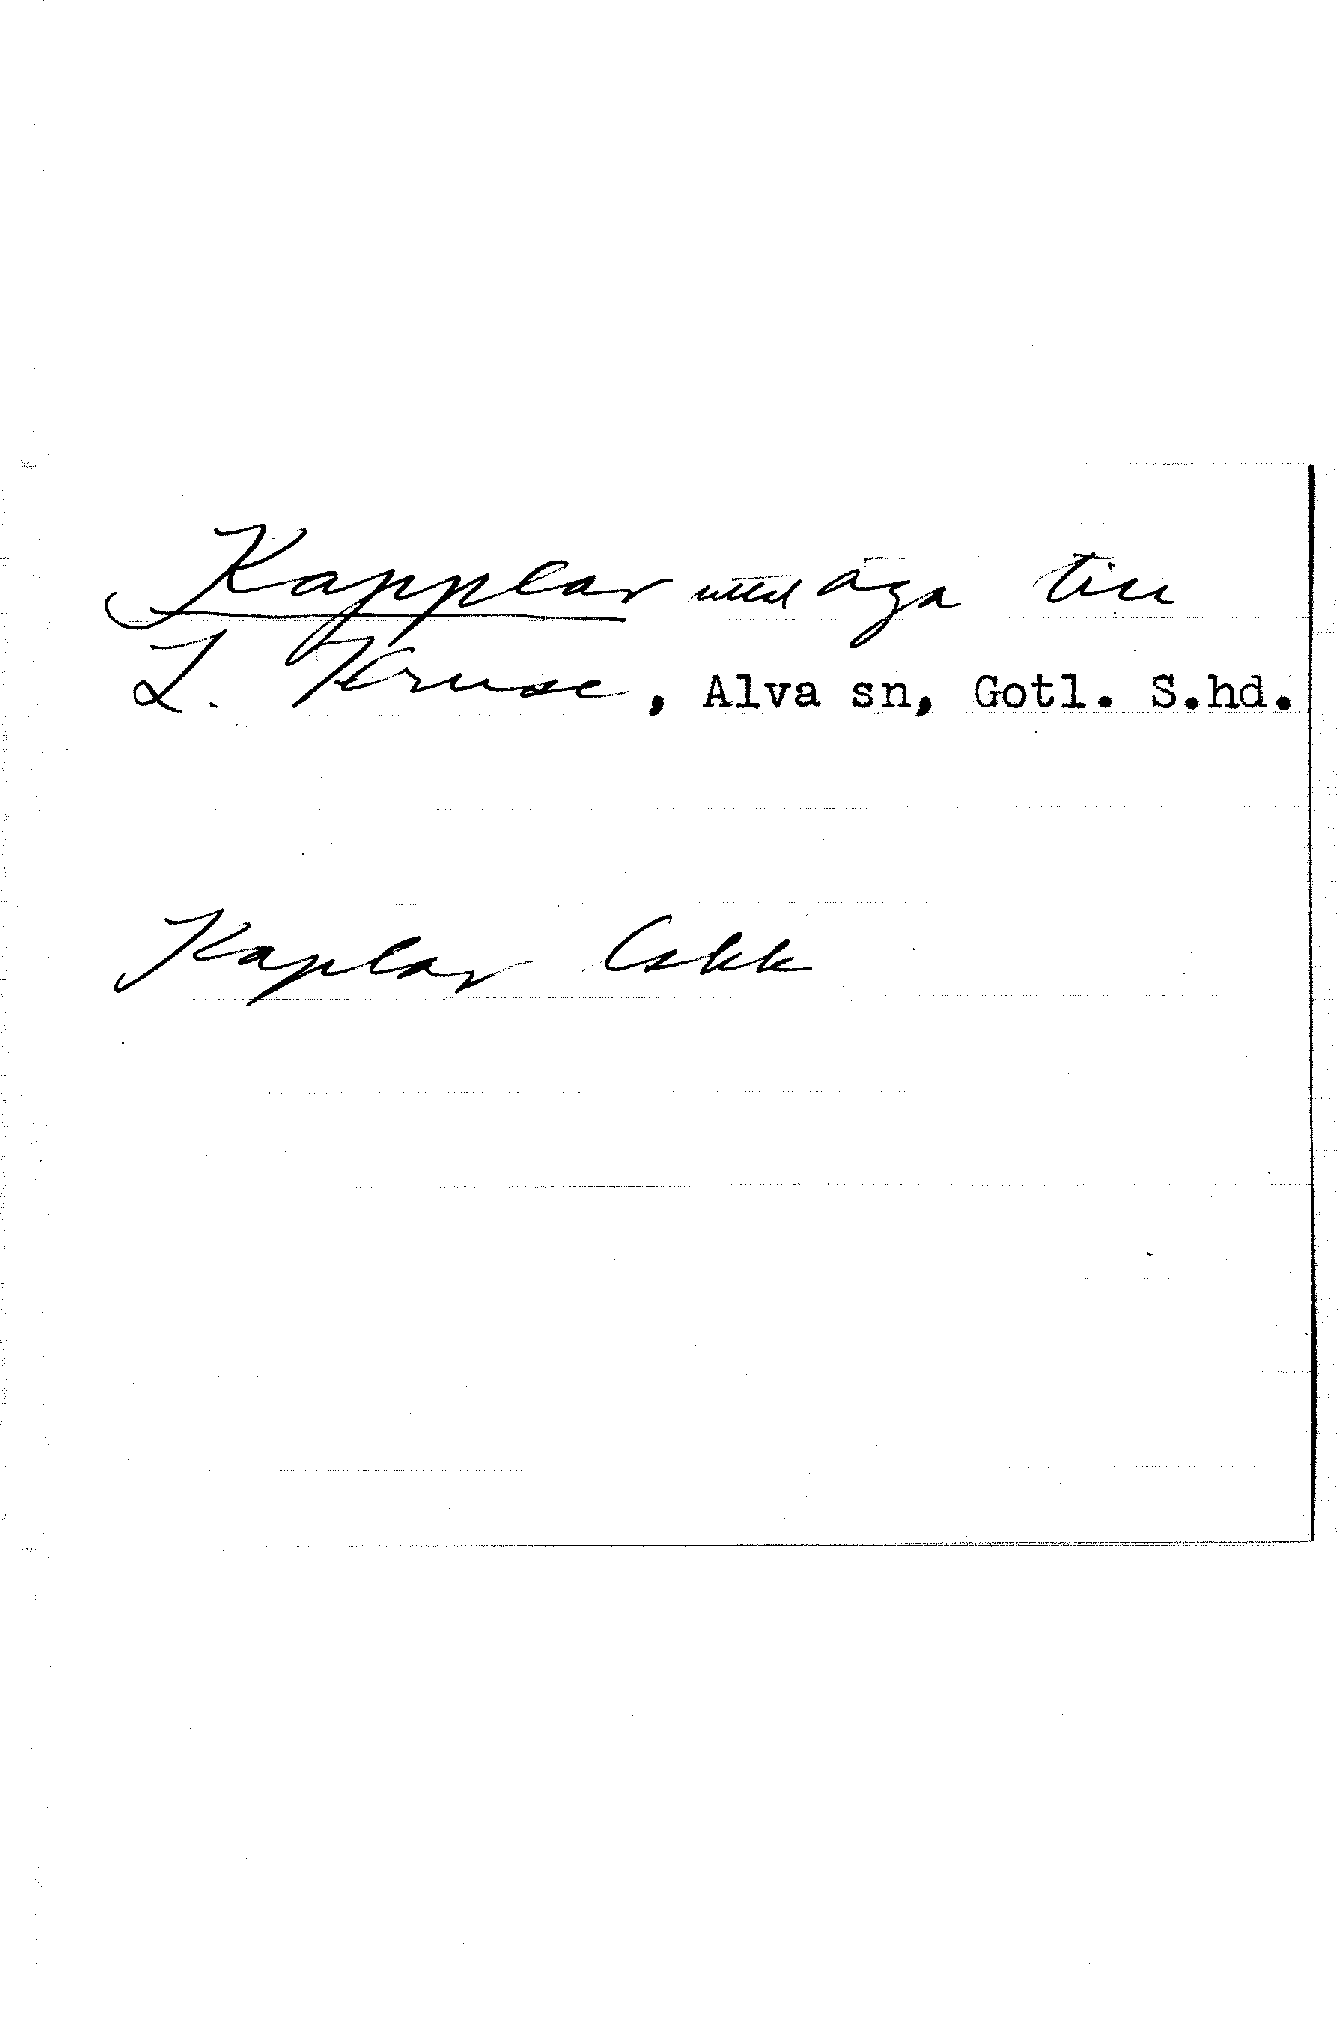 Kapplar utäga till
L. Kruse, Alva sn, Gotl. S.hd.
Kaplar